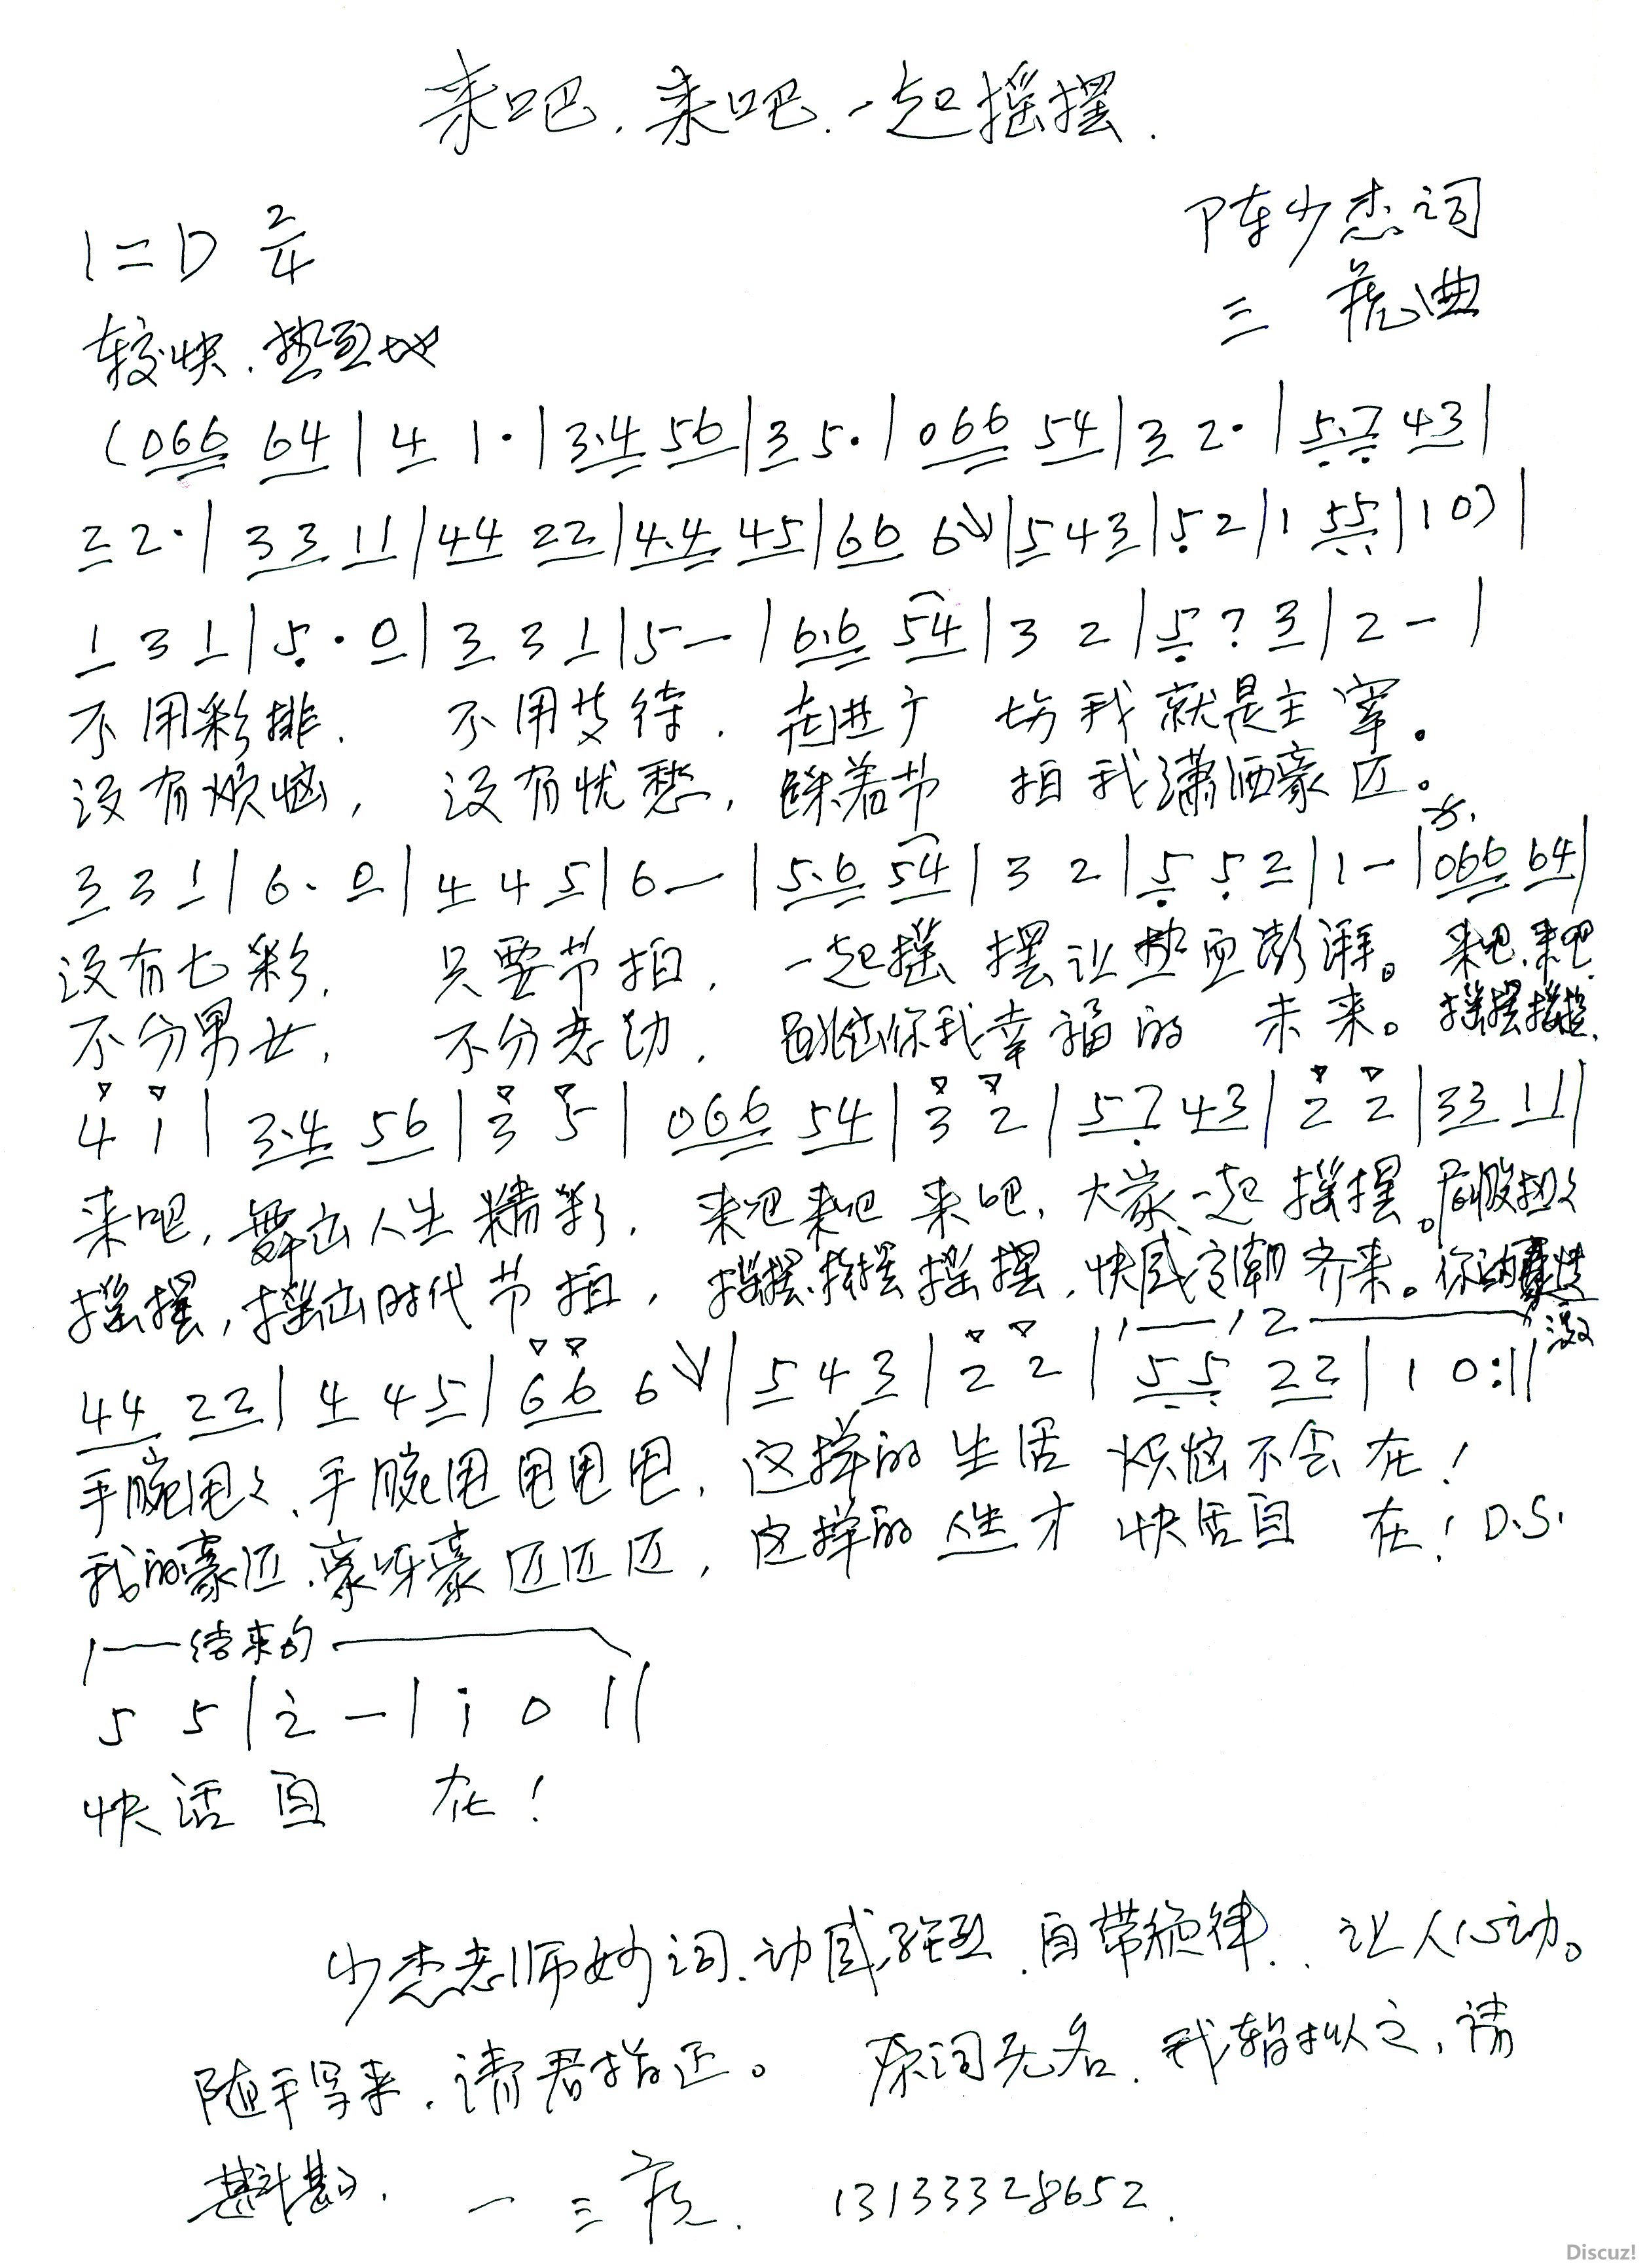 来吧.来吧.一起摇摆.
1=D 2/4
陈少杰词
三 虎曲
较快.热烈地
(066 64|4 1·|3·4 56|3 5·|066 54|3 2·|5·7 43|
2 2·|33 11|44 22|4·4 45|66 6∨|5 4 3|5 2|1 55|1 0)|
1 3 1|5· 0|3 3 1|5 —|6·6 54|3 2|5 7 3|2 —|
不用彩排. 不用等待. 走进广 场我就是主宰。
没有烦恼, 没有忧愁, 踩着节 拍我潇洒豪迈。
3 3 1|6· 0|4 4 5|6 —|5·6 54|3 2|5 5 2|1 —|066 64|
没有七彩, 只要节拍, 一起摇 摆让热血澎湃。来吧.来吧.
不分男女, 不分老幼, 跳出你我幸福的 未来。摇摆摇摆,
4 1|3·4 56|3 5|066 54|3 2|57 43|2 2|33 11|
来吧,舞出人生精彩, 来吧来吧来吧,大家一起摇摆。屁股扭扭
摇摆,摇出时代节拍, 摇摆.摇摆摇摆,快感高潮齐来。你的
激
1 2
44 22|4 4 5|66 6∨|5 4 3|2 2|55 22|1 0:||
手腕甩甩.手腕甩甩甩甩,这样的生活 烦恼不会在!
我的豪迈.豪呀豪迈迈迈,这样的人生才 快活自 在! D.S.
结束句
5 5|2 —|1 0||
快活自 在!
少杰老师妙词.动感强烈.自带旋律.让人心动。
随手写来.请君指正。 原词无名.我暂拟之,请
斟酌. 一 三虎. 13133328652.
Discuz!